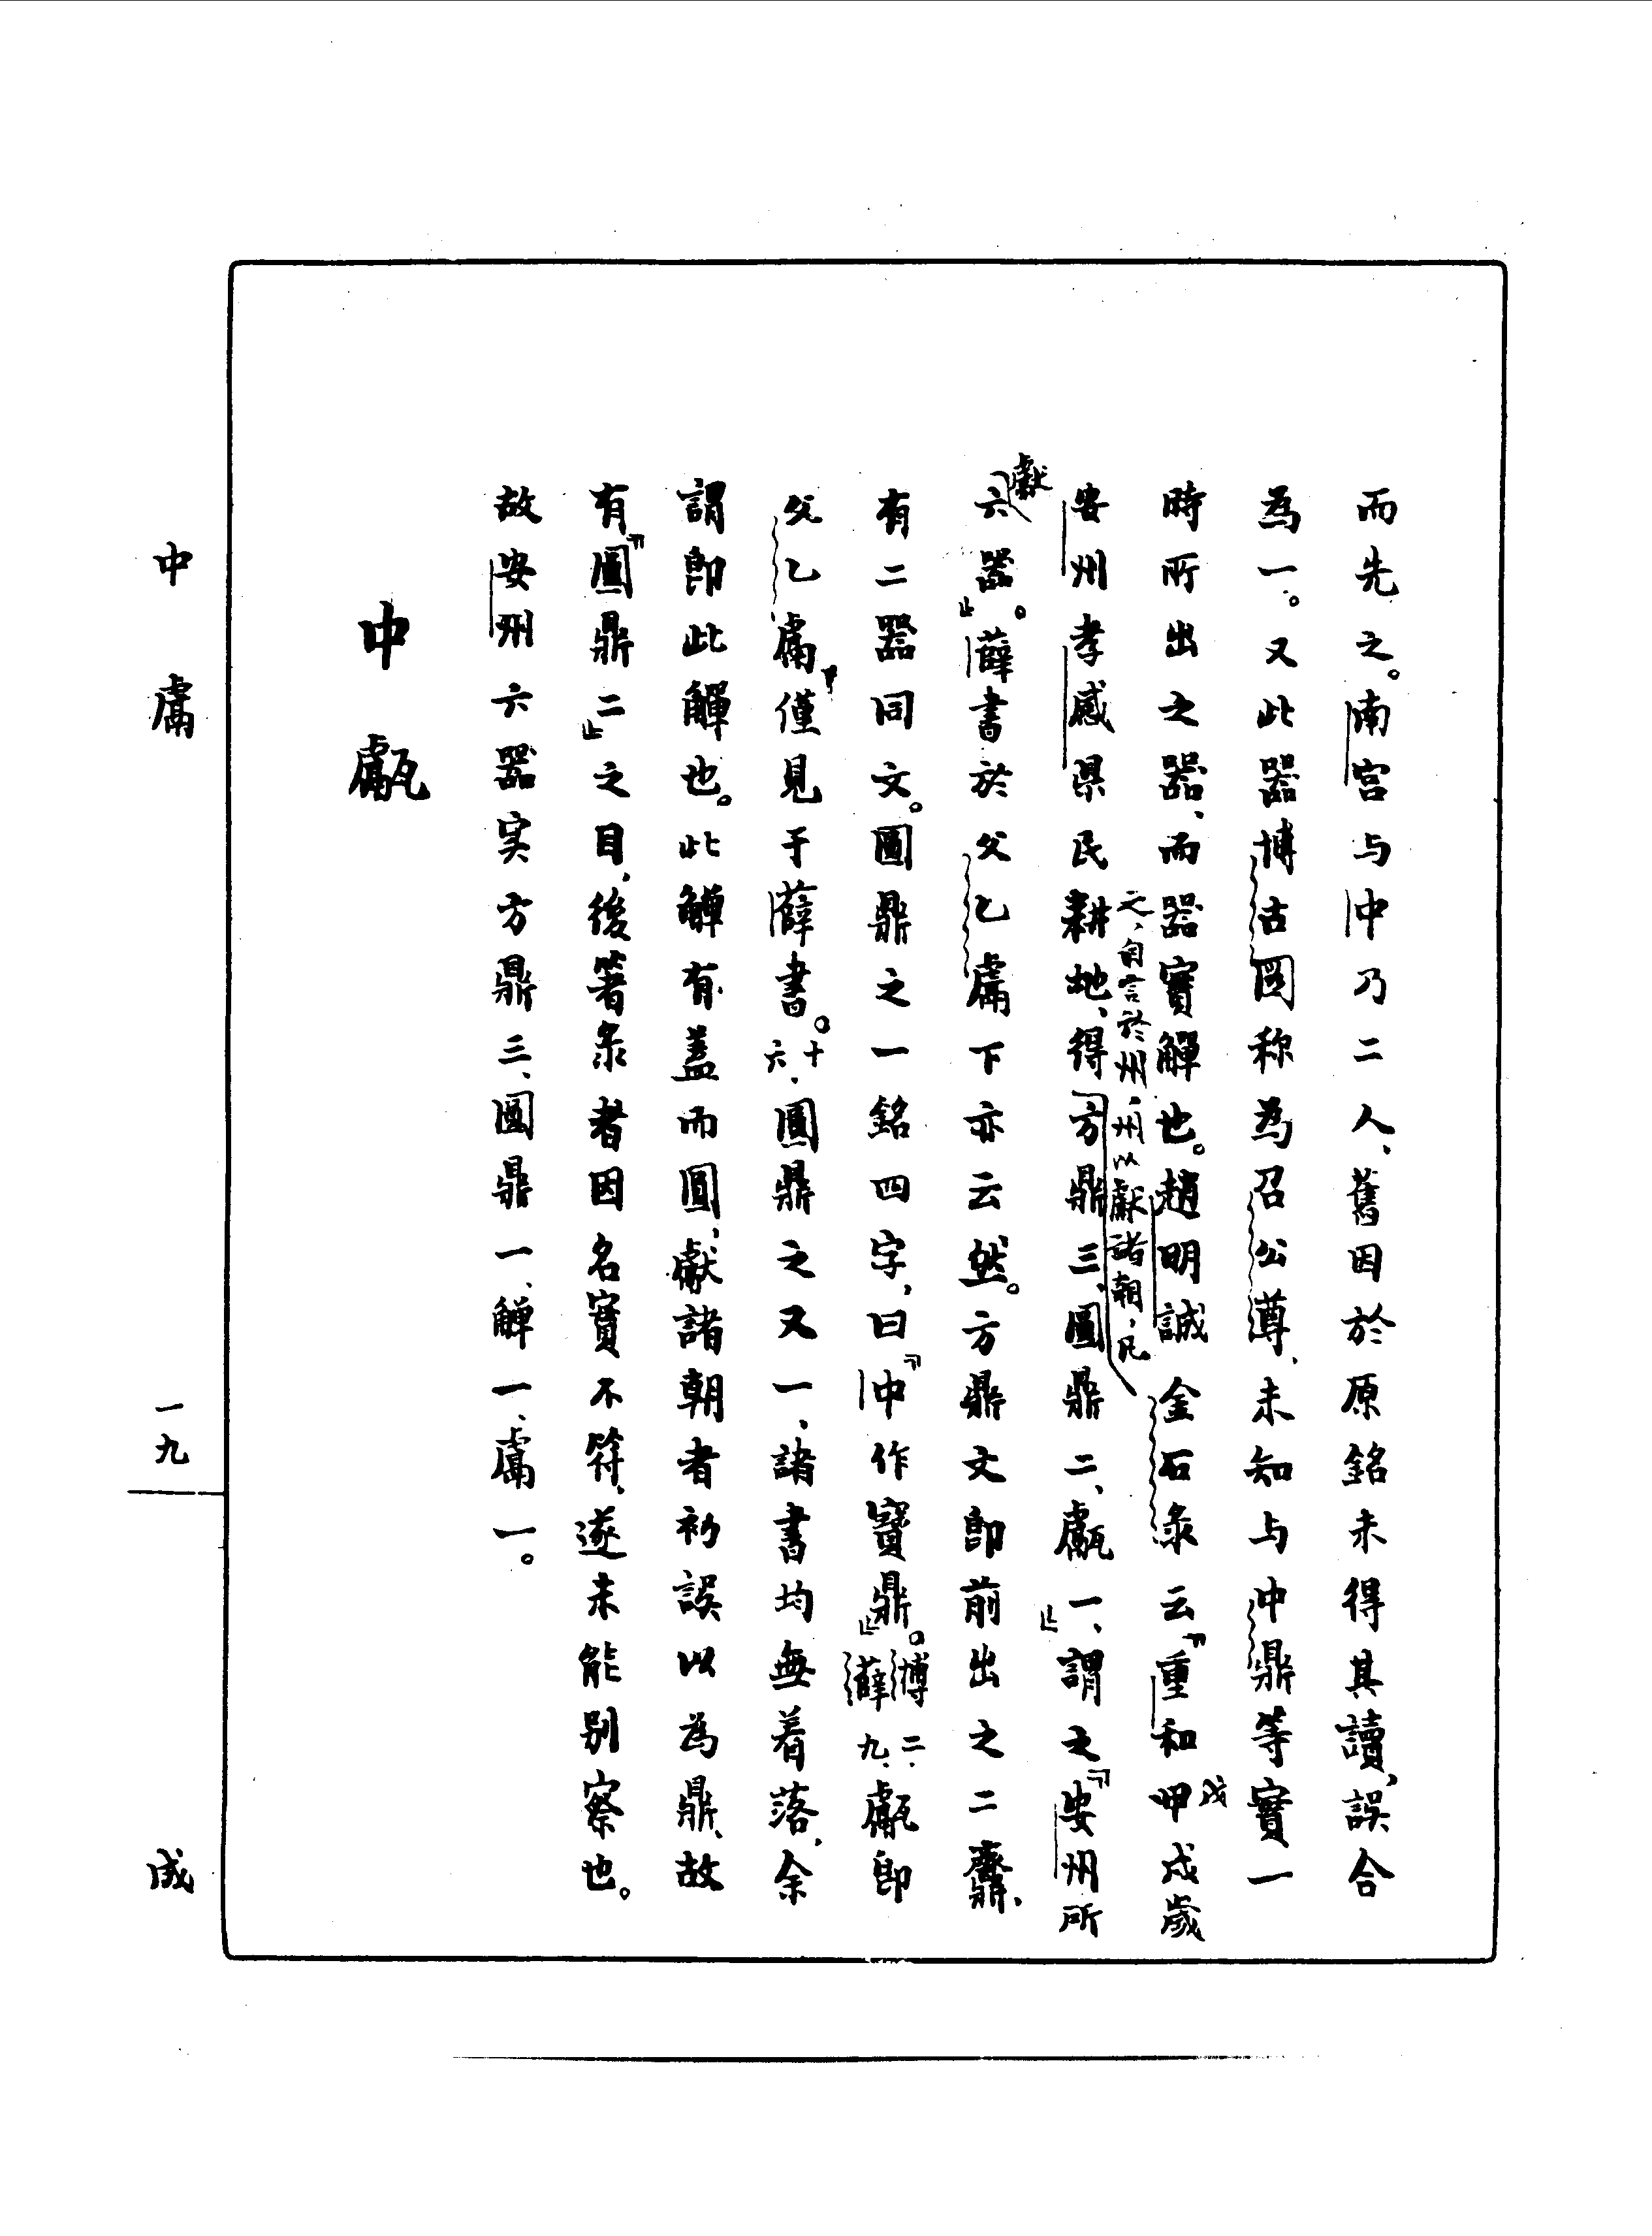 而先之。南宮与中乃二人、舊因於原銘未得其讀、誤合
為一。又此器博古図称為召公𣪘、未知与中鼎等實一
時所出之器、而器實觶也。趙明誠金石彔云『重和戊戌歲
安州孝感県民耕地、得方鼎三、圓鼎二、甗一、謂之『安州所
之、自言於州、州以獻諸朝、凡
獻
六器』。薛書於父乙鬲下亦云然。方鼎文即前出之二齋鼎、
有二器同文。圓鼎之一銘四字、曰『中作寶鼎』。博二·薛九、甗即
父乙鬲、僅見于薛書。十六、圓鼎之又一、諸書均無着落、余
謂即此觶也。此觶有蓋而圓、獻諸朝者初誤以為鼎、故
有『圓鼎二』之目、後箸彔者因名實不符、遂未能別察也。
故安州六器実方鼎三、圓鼎一、觶一、鬲一。
中甗
中鬲
一九
成